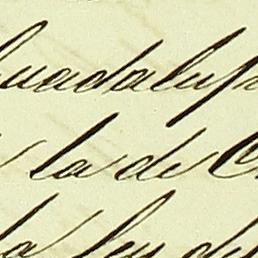 Guadalup
la de C
la ley de